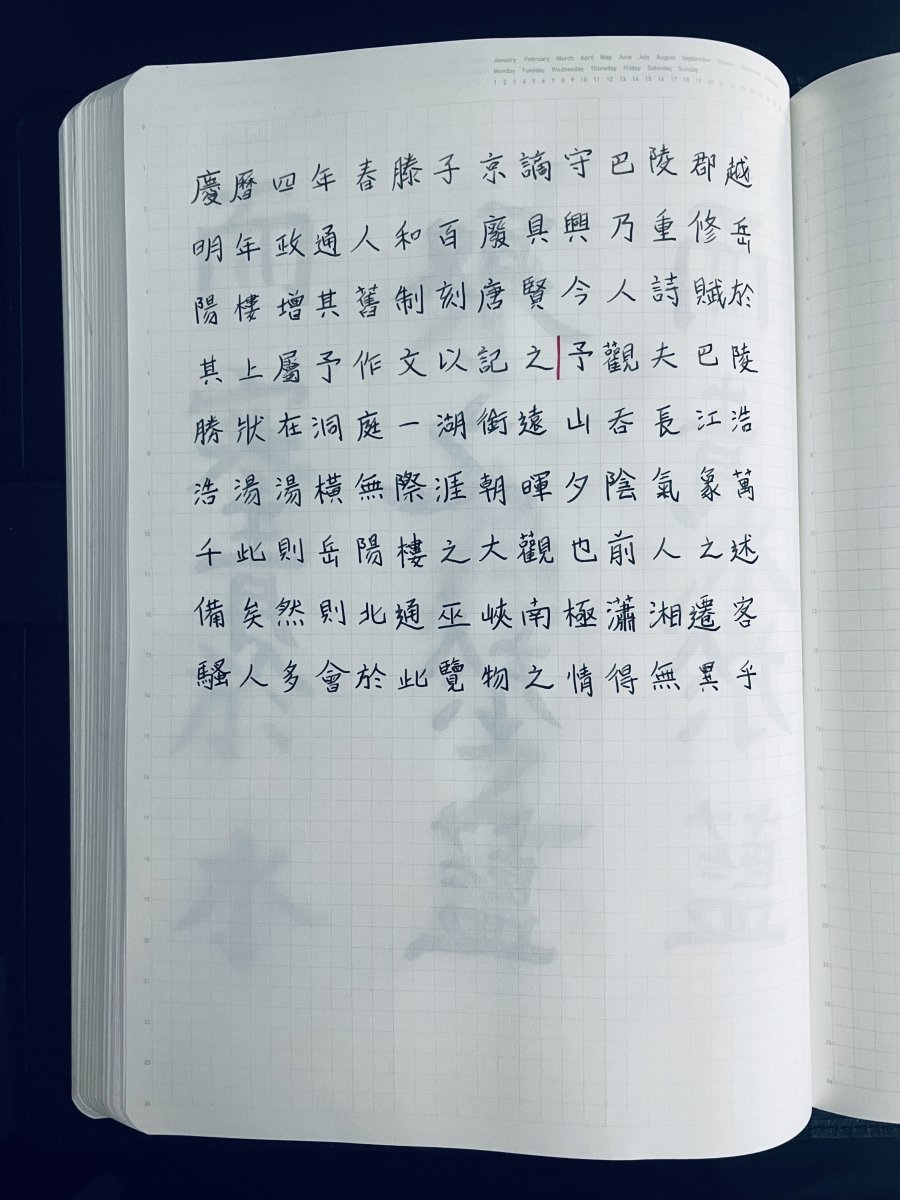 January February March April May June July August September October November
Monday Tuesday Wednesday Thursday Friday Saturday Sunday
1 2 3 4 5 6 7 8 9 10 11 12 13 14 15 16 17 18 19 20 21
慶曆四年春滕子京謫守巴陵郡越
明年政通人和百廢具興乃重修岳
陽樓增其舊制刻唐賢今人詩賦於
其上屬予作文以記之予觀夫巴陵
勝狀在洞庭一湖銜遠山吞長江浩
浩湯湯橫無際涯朝暉夕陰氣象萬
千此則岳陽樓之大觀也前人之述
備矣然則北通巫峽南極瀟湘遷客
騷人多會於此覽物之情得無異乎